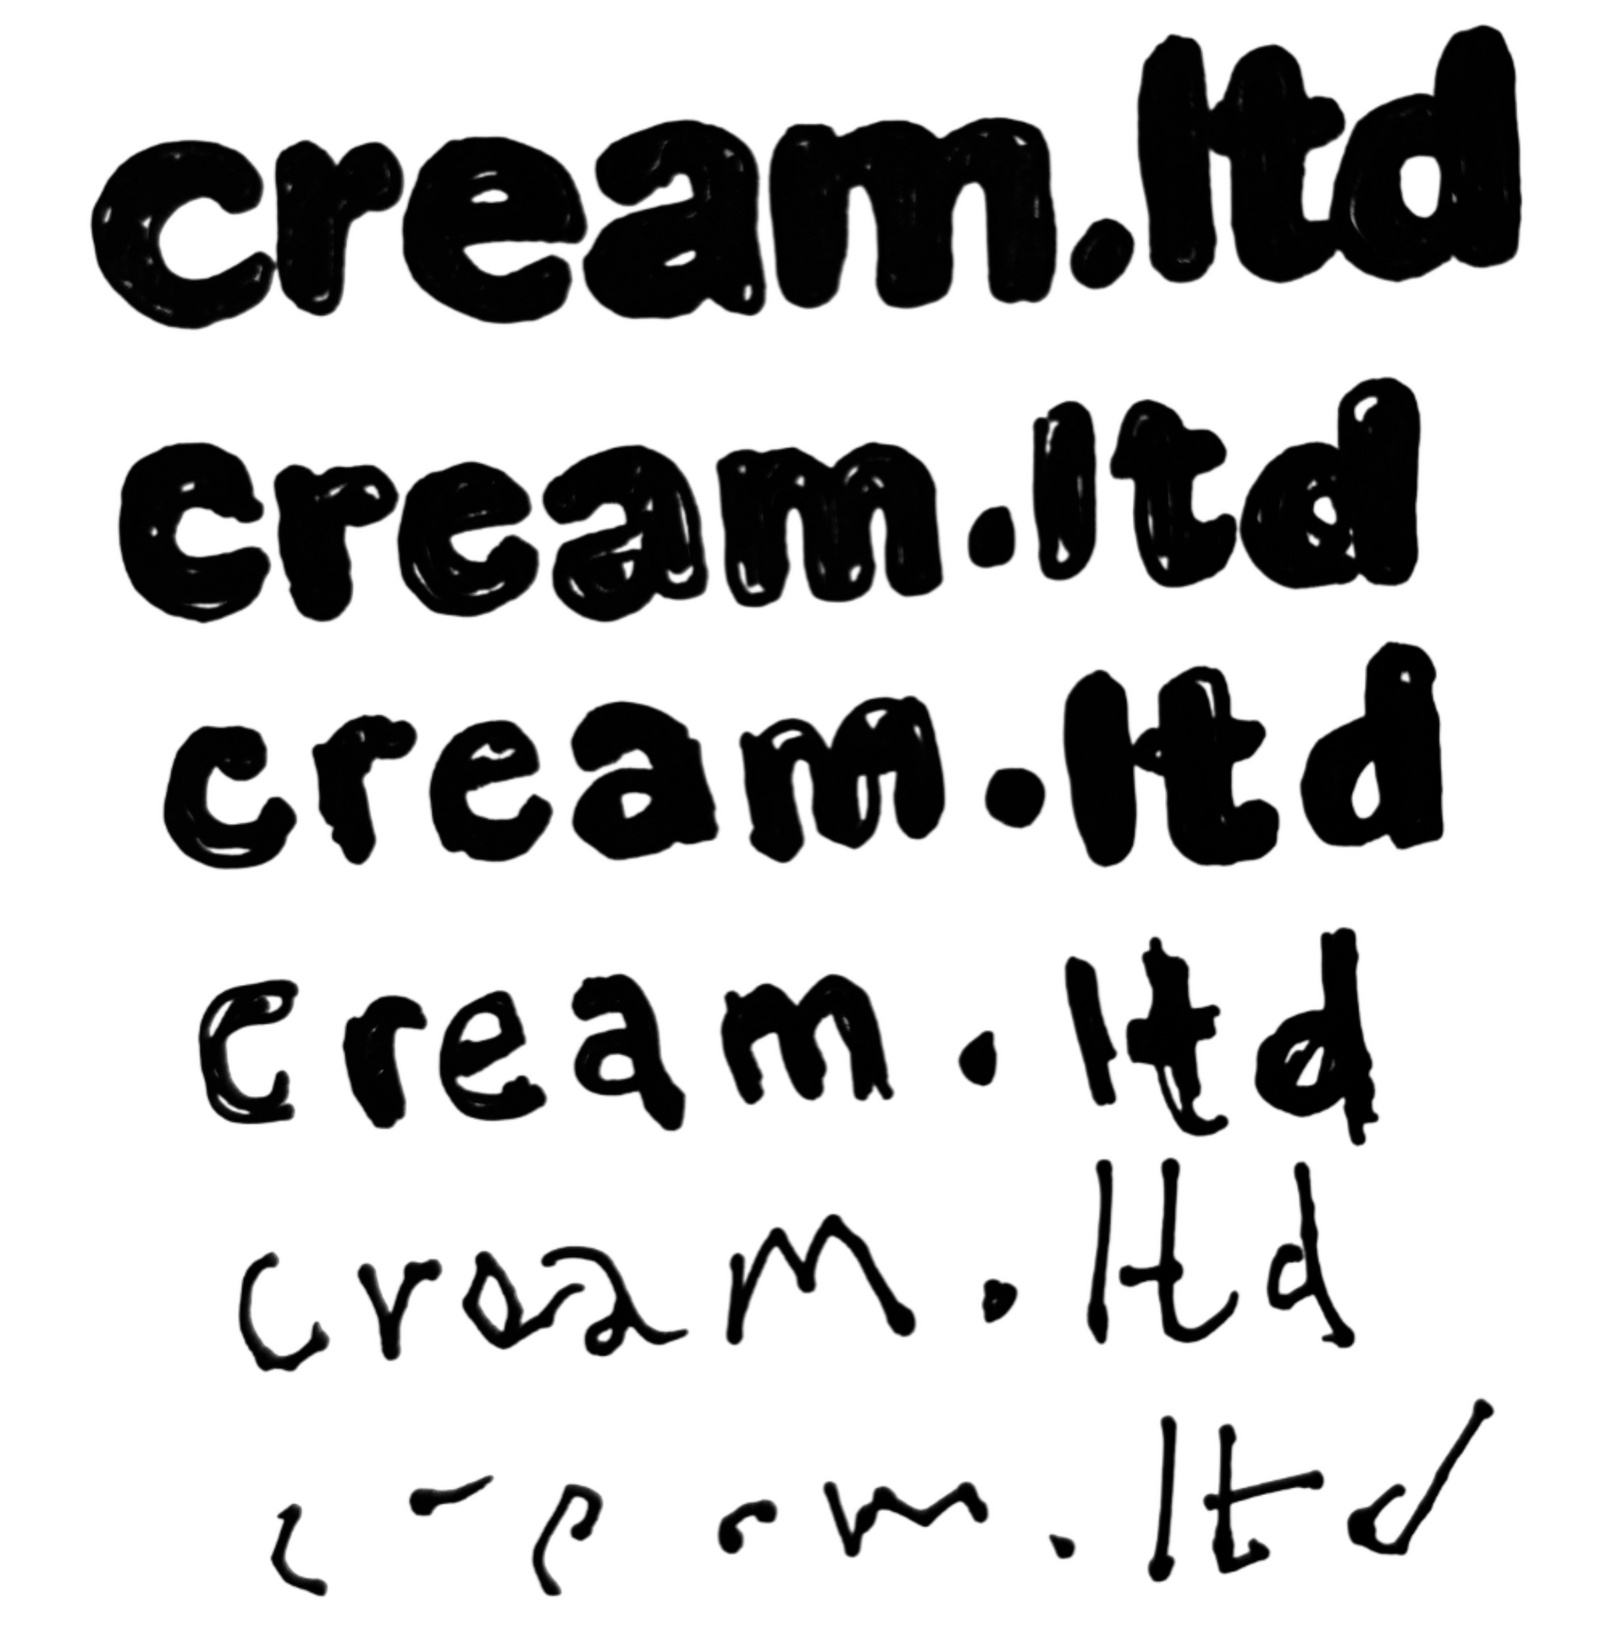 cream.ltd
cream.ltd
cream.ltd
cream.ltd
cream.ltd
c-e am.ltd